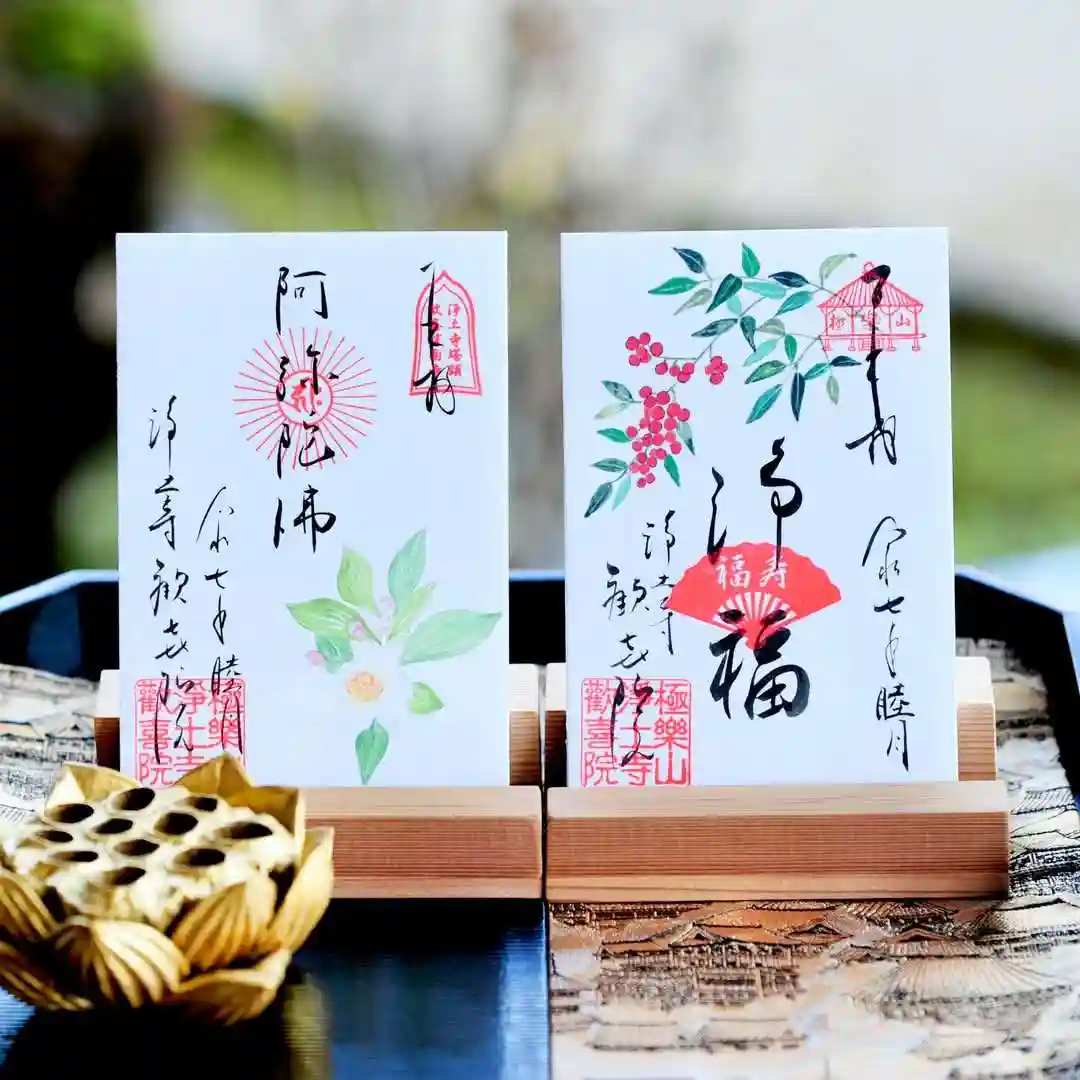 奉拝
阿弥陀佛
令和七年睦月
浄土寺
歓喜院
極樂山
浄土寺
歡喜院
奉拝
極楽山
浄福
福寿
令和七年睦月
浄土寺
歓喜院
極樂山
浄土寺
歡喜院